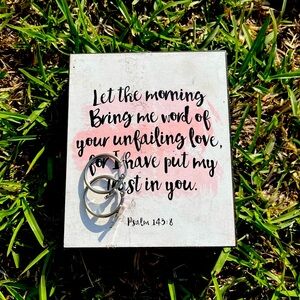 Let the morning
Bring me word of
your unfailing love,
for I have put my
trust in you.
Psalm 143:8